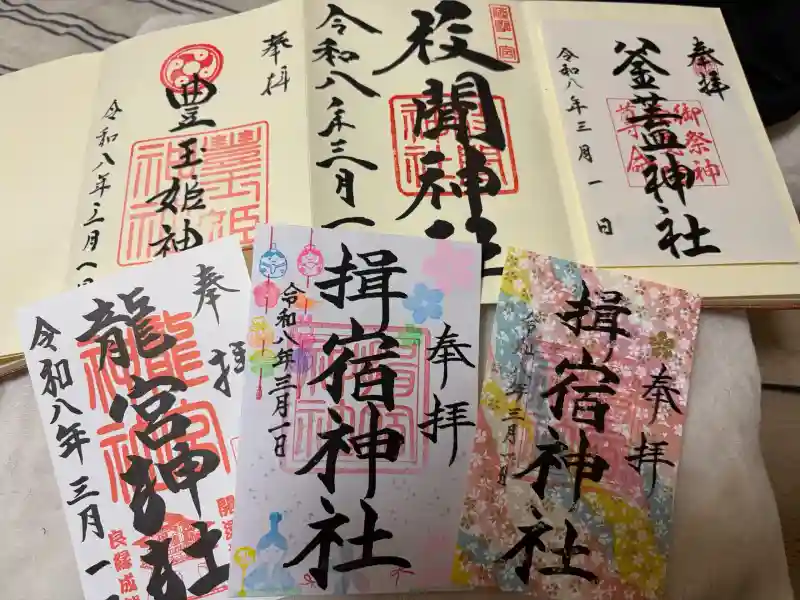 奉拝
豊玉姫神
令和八年三月一日
枚聞神社
令和八年三月一
奉拝
釜蓋神社
御祭神
令和八年三月一日
奉拝
龍宮神社
令和八年三月一
奉拝
揖宿神社
令和八年三月一日
奉拝
揖宿神社
年三月